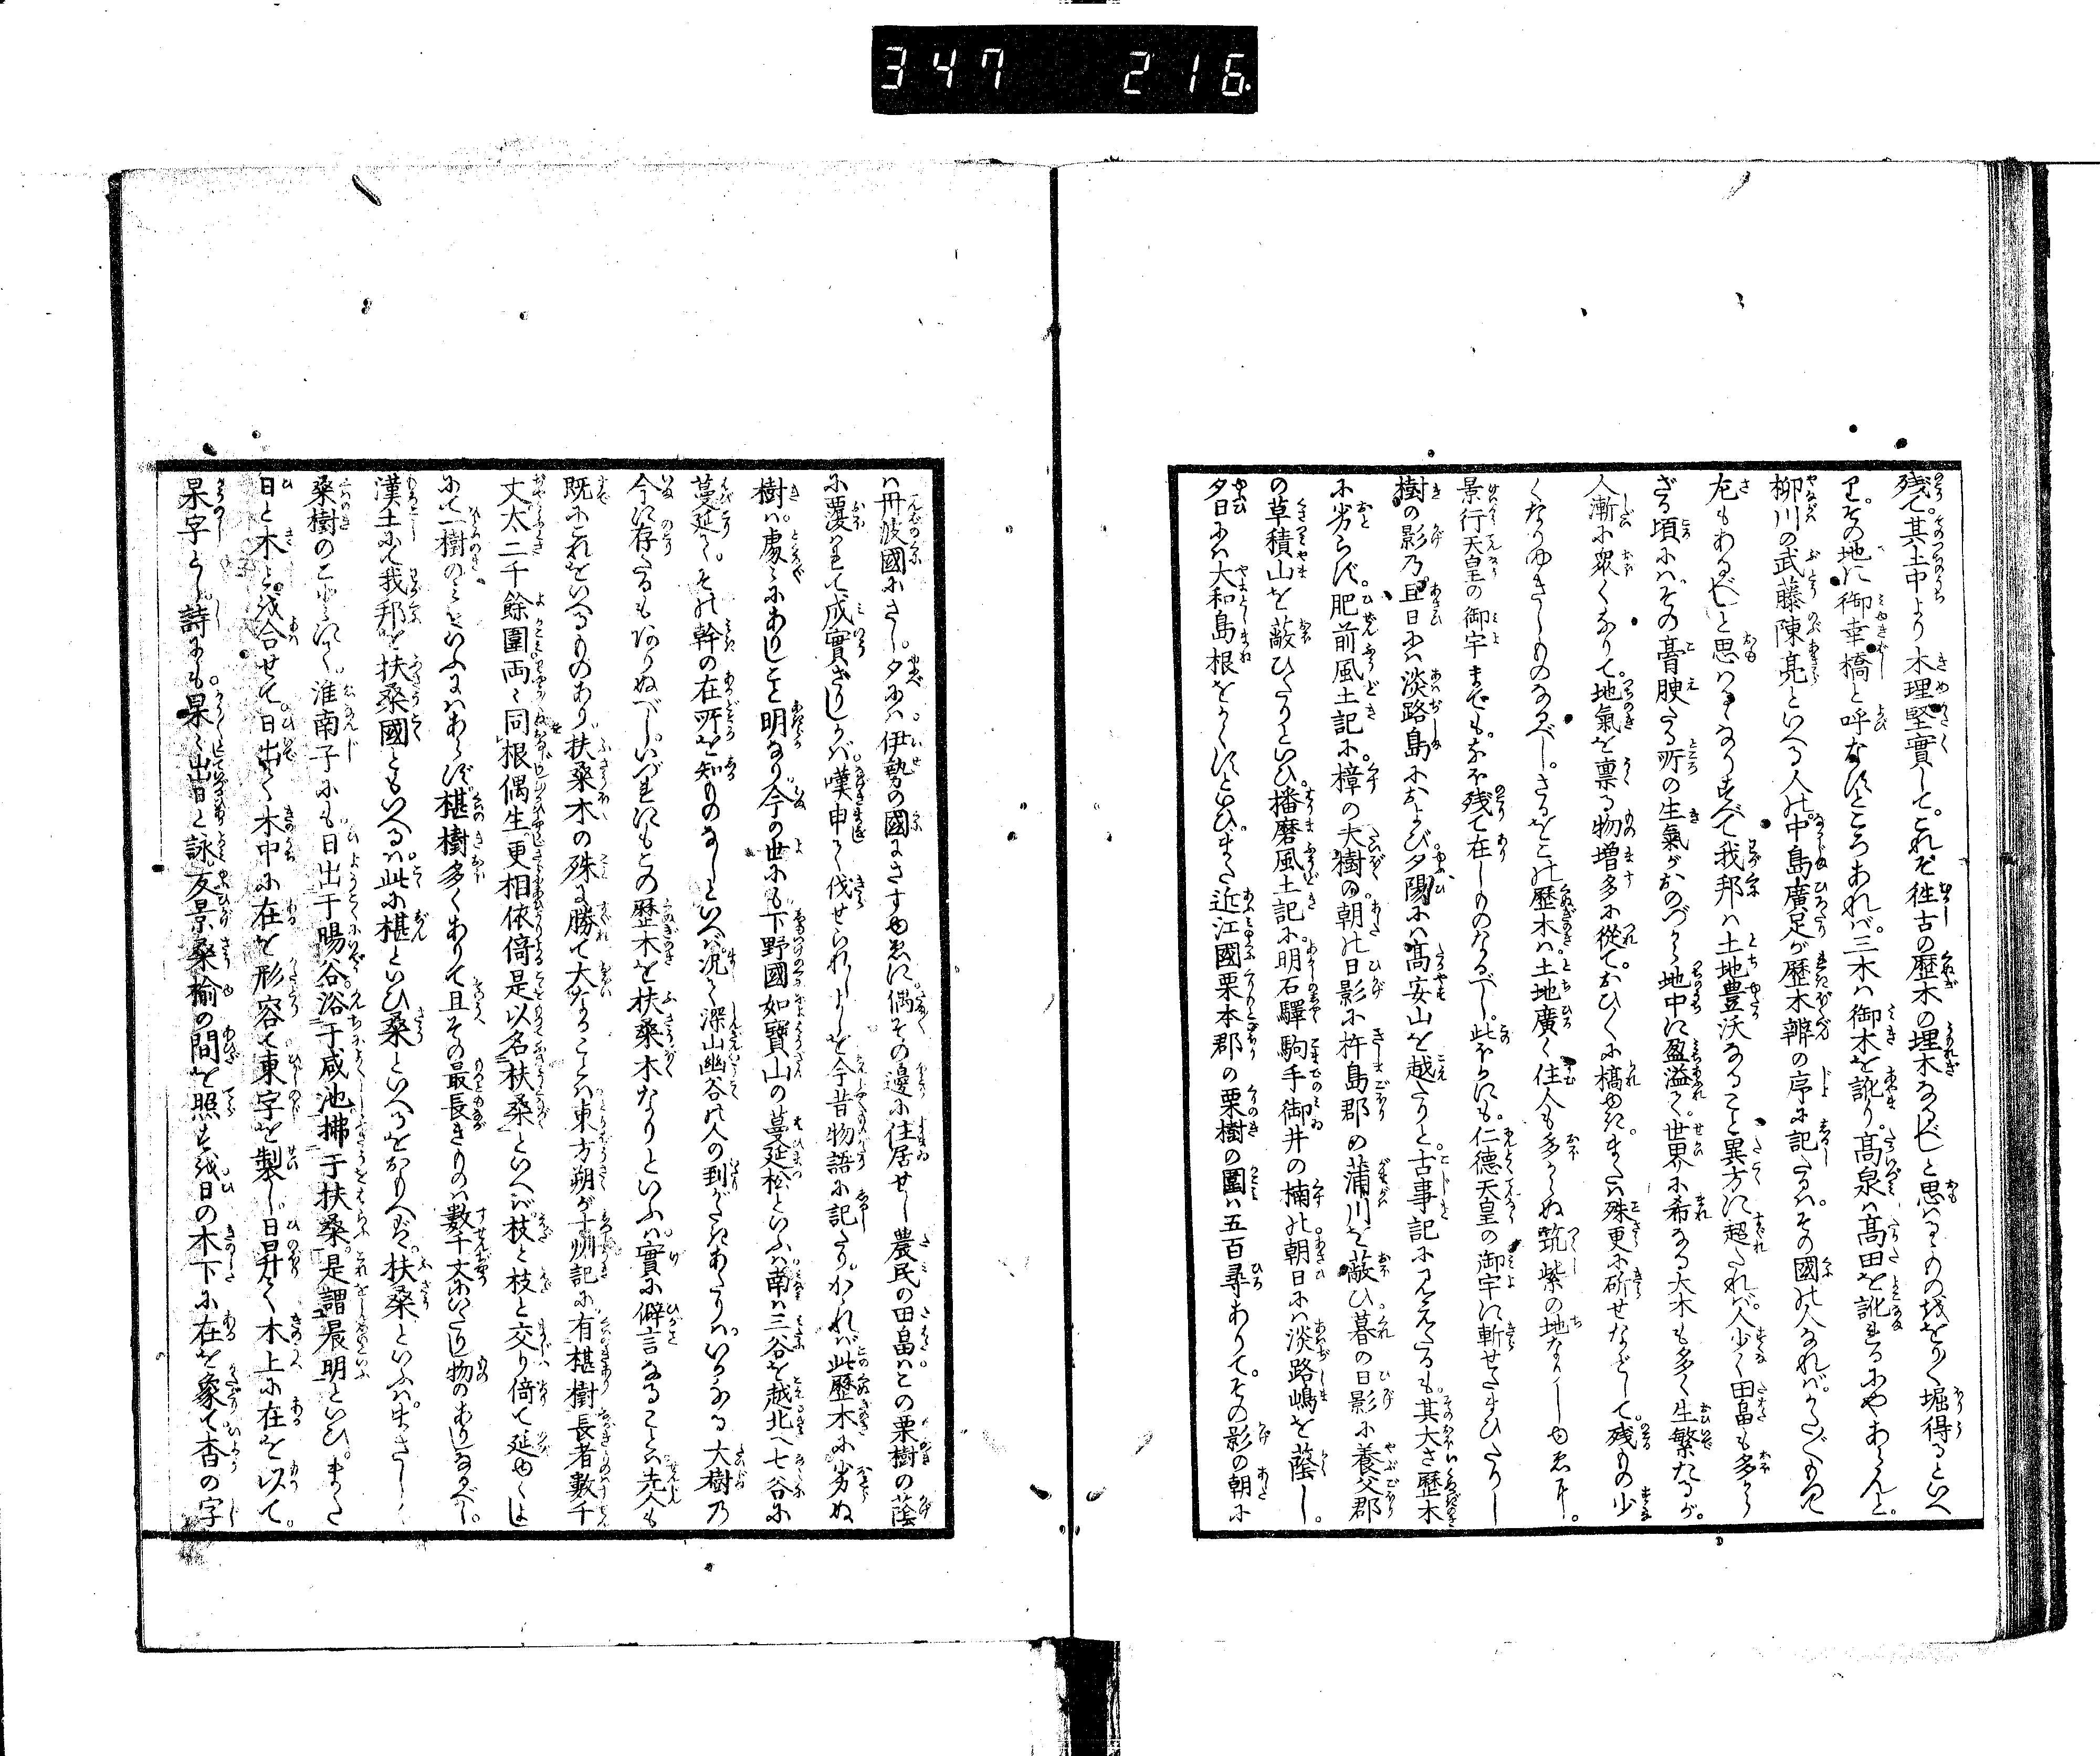 347 216.
残て。其土中より木理堅實して。これぞ徃古の歴木の埋木なるべしと思はるゝもの抔をりく堀得るといへ
り。その地に御幸橋と呼なすところあれバ。三木ハ御木を訛り。高泉ハ高田を訛れるにやあらんと。
柳川の武藤陳亮といへる人の。中島廣足が歴木辨の序に記たるハ。その國の人なれバ。かたがたもつて
左もあるべしと思はるゝなりすべて我邦ハ土地豊沃なること異方に超たれバ。人少く田畠も多から
ざる頃にハ。その膏腴たる所の生氣がおのづから地中に盈溢て。世界に希なる大木も多く生繁たるが。
人漸に衆くなりて。地氣を稟る物増多に從て。おひくに槁ゆき。または殊更に斫せなどして。残るもの少
くなりゆきしものなるべし。さるをこの歴木ハ。土地廣く住人も多からぬ筑紫の地なりしゆゑに。
景行天皇の御宇までも。なほ残て在しものなるべし。此ほかにも。仁徳天皇の御宇に斬せたまひたりし
樹の影乃。旦日にハ淡路島におよび。夕陽にハ高安山を越たりと。古事記に見えたるも。其大さ歴木
に劣らず。肥前風土記に。樟の大樹の朝の日影に杵島郡の蒲川を蔽ひ。暮の日影に養父郡
の草積山を蔽ひたりといひ。播磨風土記に。明石驛駒手御井の楠の。朝日にハ淡路嶋を蔭し。
夕日にハ大和島根をかくすといひ。また近江國栗本郡の栗樹の圍ハ五百尋ありて。その影の朝に
ハ丹波國にさし。夕にハ伊勢の國にさすゆゑに。偶その邊に住居せし農民の田畠ハこの栗樹の蔭
に覆はれて成實ざりしかバ。嘆申て伐せられしよしを今昔物語に記たり。かゝれバ此歴木に劣ぬ
樹ハ。處々にありしこと明なり。今の世にも。下野國如寶山の蔓延松といふハ。南ハ三谷を越北ハ七谷に
蔓延て。その幹の在所を知ものなしといへバ。况て深山幽谷の人の到がたきあたりハ。いかなる大樹乃
今に存たるもはかりぬべし。いづれにもこの歴木を扶桑木なりといふハ。實に僻言なることハ先人も
既にこれをいへるものあり。扶桑木の殊に勝て大なることハ。東方朔が十洲記に有椹樹長者數千
丈太二千餘圍両々同根偶生更相依倚是以名扶桑といへバ。枝と枝と交り倚て延ゆくは
にて。一樹のミをいふにハあらず。椹樹多くありて且その最長きものハ數千丈にいたりし物のありしなるべし。
漢土にて我邦を扶桑國ともいへるハ。此に椹といひ桑といへるをおもへバ。扶桑といふハ。まさしく
桑樹のことにて。淮南子にも日出于暘谷。浴于咸池拂于扶桑。是謂晨明といひ。また
日と木とを合せて。日出て木中に在を形容て東字を製し。日昇て木上に在を以て。
杲字とし。詩にも。杲々出日と詠。反景桑楡の間を照すを。日の木下に在を象て杳の字